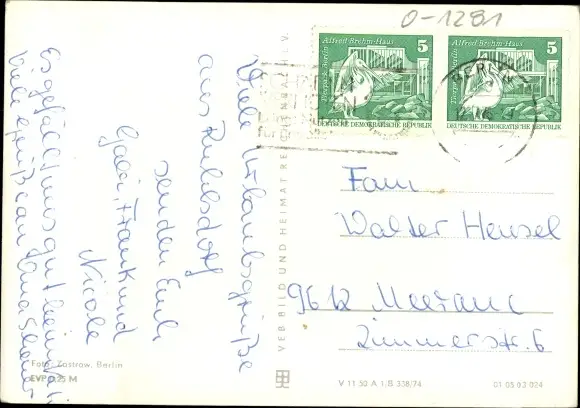 0-1281
Alfred-Brehm-Haus
5
Tierpark Berlin
DEUTSCHE DEMOKRATISCHE REPUBLIK
Alfred-Brehm-Haus
5
Tierpark Berlin
DEUTSCHE DEMOKRATISCHE REPUBLIK
BERLIN
Viele Urlaubsgrüße
aus Ruhlsdorf
senden Euch
Gabi, Frank und
Nicole
Es gefällt uns gut
viele Grüße an
Fam
Walter Hensel
9612 Meerane
Zimmerstr. 6
VEB BILD UND HEIMAT REICHENBACH I. V.
Foto: Zastrow, Berlin
EVP 0,25 M
V 11 52 A 1/B 338/74
01 05 02 024